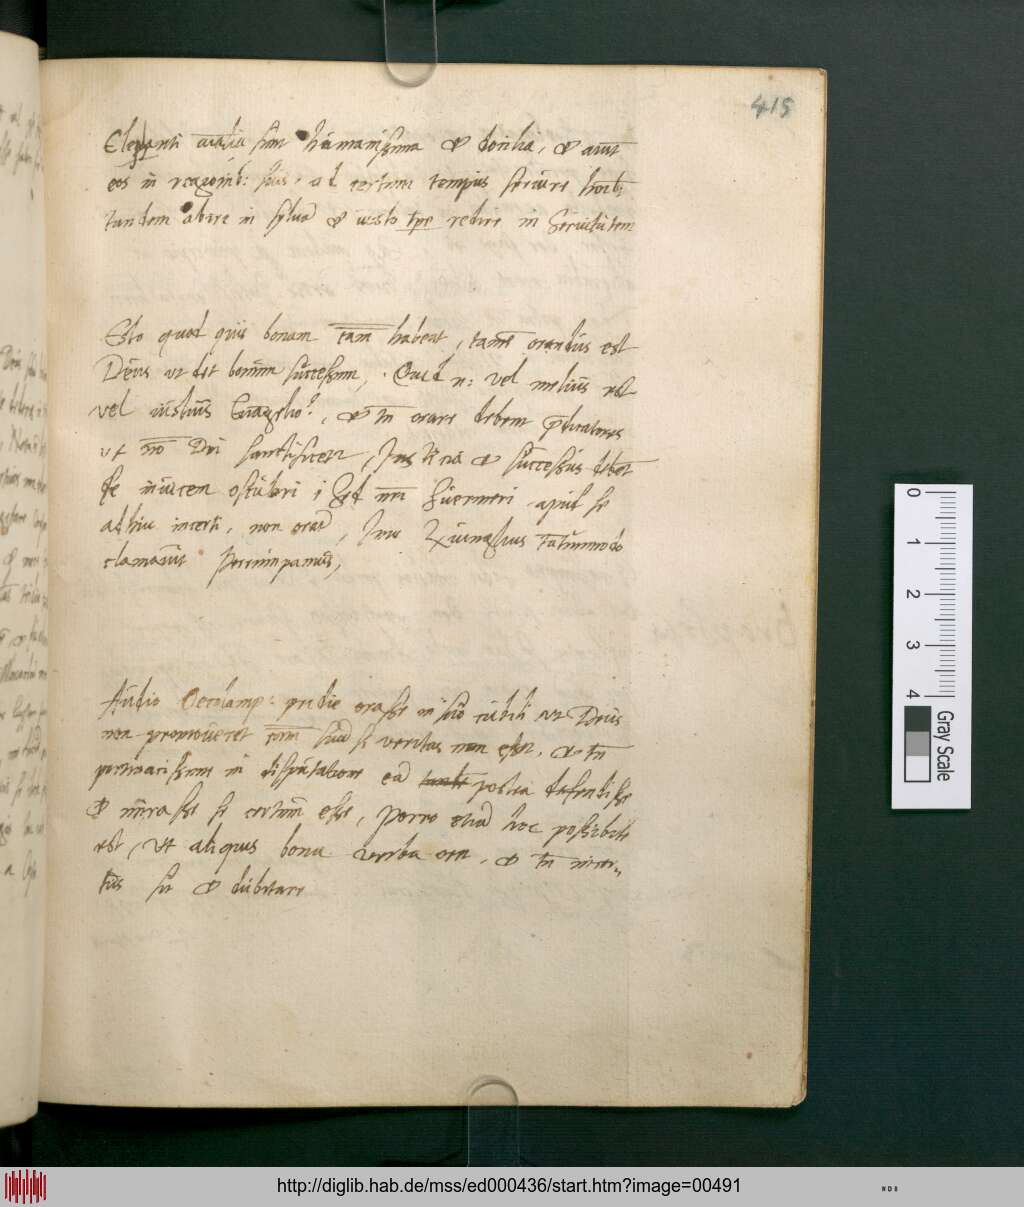 415
Elephanti aĩalia sũt humanissima et docilia, et aiũt
eos in regionib: suis, ad certum tempus servire hoĩb:
tandem abire in sylvã et iusto tp̃e redire in Servitutem
Esto quod quis bonam cãm habeat, tamẽ orandus est
Deus ut det bonum successum, Quid n: vel melius est
vel iustius Evãgelio?, et tñ orare debent p̃dicatores
ut nõ Dñi sanctificetr, Iustitia et successus debẽt
se invicem osculari, Sed nr̃i Suermeri apud se
adhuc incerti, non orãt, Imo Zuinglius tantummodo
clamavit Perrumpamus,
Audio Oecolamp: pridie orasse in suo cubili ut Deus
non promoveret cãm suã si veritas non esset, et tñ
pertinacissime in disputatione eã postea defendisse
et iurasse se certum esse, Porro etiã hoc possibile
est, ut aliquis bona verba oret, et tñ incer-
tus sit et dubitare
0
1
2
3
4
Gray Scale
http://diglib.hab.de/mss/ed000436/start.htm?image=00491